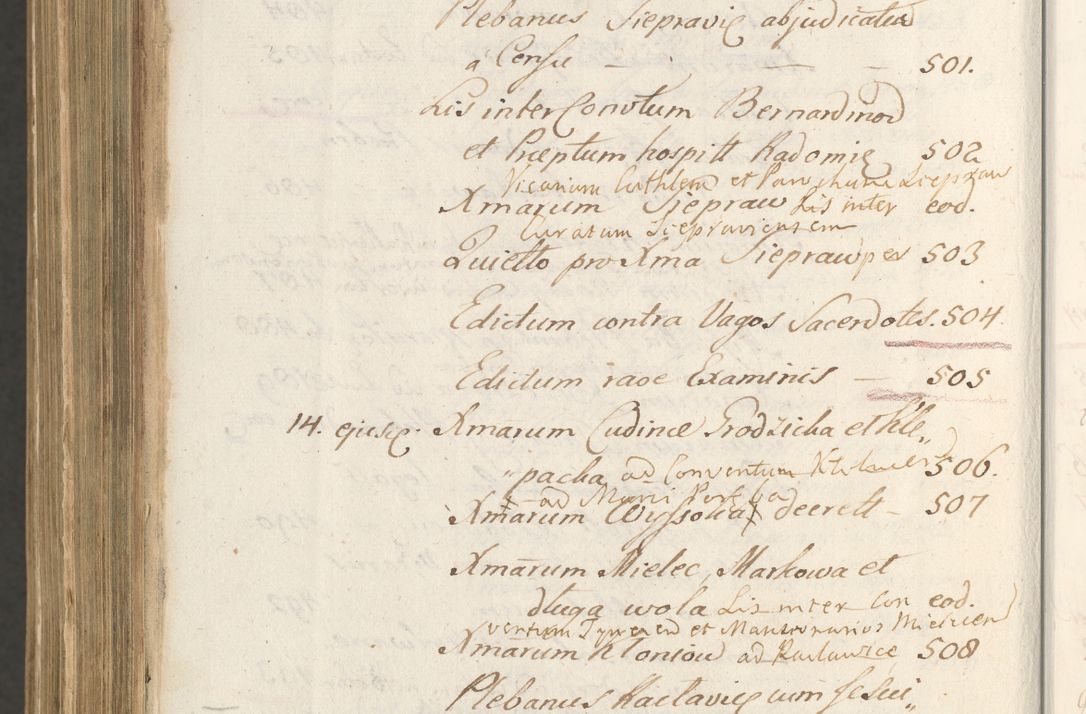 Plebanus Siepravię abjudicatus
a Censu — — — 501.
Lis inter Convtum Bernardinoɔ
et Præptum hospitt Radomię 502
Vicarium Cathlem et Parochum Sieprav
Xmarum Siepraw Lis inter eod.
Curatum Siepraviensem
Quietto pro Xma Siepraw per 503
Edictum contra Vagos Sacerdotes. 504.
Edictum raoe Examinis — 505
14. ejusq. Xmarum Cudince Grodzicka et Kle„
„packa ad Conventum 506.
ad
Xmarum Wyssowa decrett – 507
Xmarum Mielec, Markowa et
długa wola Lis inter Con eod.
ventum Tynecen et Mansionarios Mielicen
Xmarum Kloniow ad Raclawice 508
Plebanus Raclavię cum Jesui„